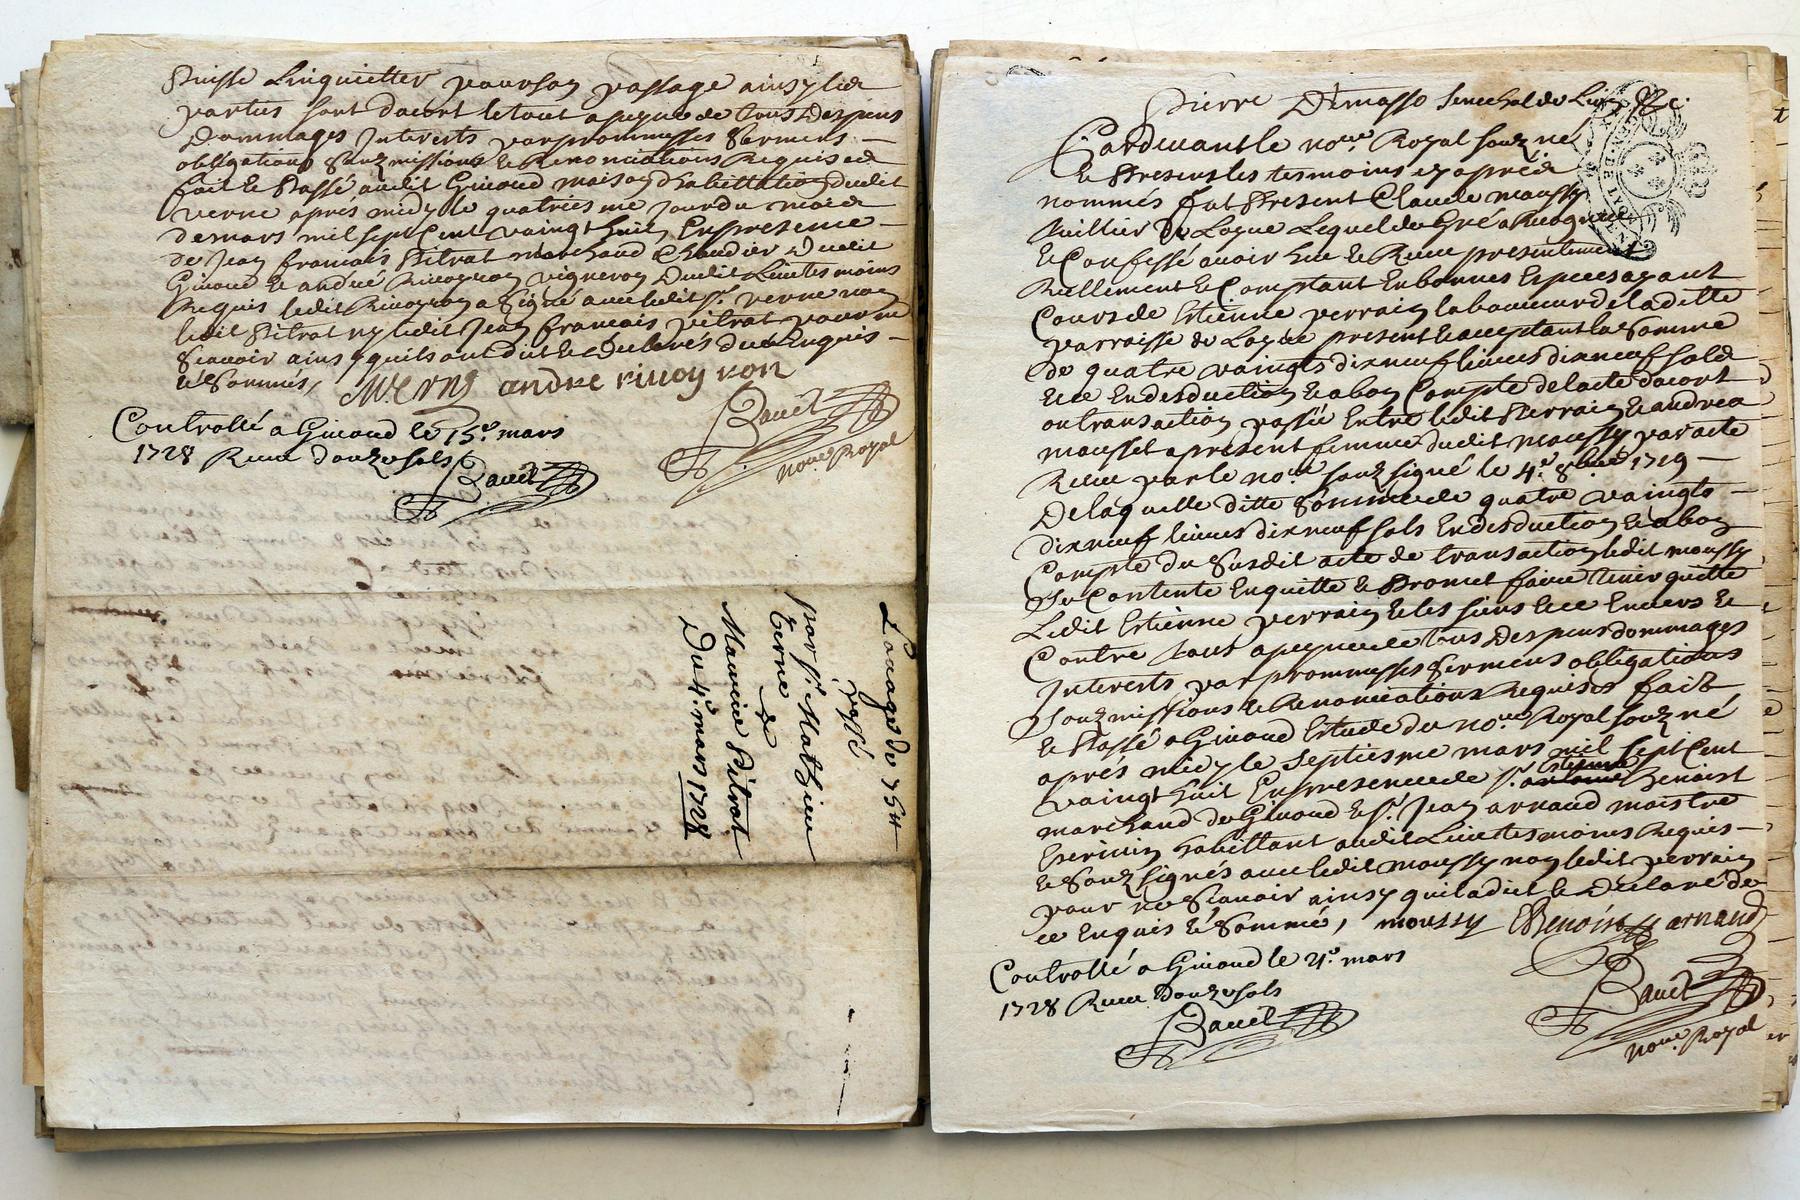 puisse Linquietter pour son passage ainsy les
parties sont dacort le tout a peyne de tous despens
Dommages Interests par prommesses sermens
obligations soubzmissions & Renonciations Requises
fait & Passé audit Givord maison d'habittation dudit
verne aprés midy le quatriesme jour du mois
de mars mil sept Cent vaingt huit En presence
de Jean francois Pitrat marchand Chandier dudit
Givord & andré Rivoyron vigneron dudit Lieu tesmoins
Requis ledit Rivoyron a signé avec ledit sr. verne non
ledit Pitrat ny ledit Jean francois pitrat pour ne
scavoir ainsy quils ont dit & declarés de ce Enquis
& sommés,
andre rivoyron
Controllé a Givord le 15e. mars
1728 Receu douze sols
nore. Royal
Louage de
passé
par sr. Mathieu
&
Maurice Pitrat
Du 4e. mars 1728
Pierre Demasso Senechal de Lion &c.
Pardevant le nore. Royal soubz né
& Presens les tesmoins cy aprés
nommés fut Present Claude moussy
de Loyre Lequel de Gré a Recogneu
& Confessé avoir heu & Receu presentement
Reellement & Comptant En bonnes Especes ayant
Cours de Estienne perrain laboureur de la ditte
parroisse de Loyre present & acceptant la somme
de quatre vaingts dix neuf livres dix neuf sols
& ce En desduction & a bon Compte de lacte dacort
ou transaction passée Entre ledit Perrain & andrea
mousset a present femme dudit moussy par acte
Receu par le nore. soubzsigné le 4e. 8bre 1719
De laquelle ditte somme de quatre vaingts
dix neuf livres dix neuf sols En desduction & a bon
Compte du susdit acte de transaction ledit moussy
Se Contente Enquitte & Promet faire tenir quitte
Ledit Estienne perrain & les siens & ce Envers &
Contre tous a peyne de tous despens dommages
Interests par prommesses sermens obligations
soubzmissions & Renonciations Requises fait
& Passé a Givord Estude du nore. Royal soubz né
aprés midy le septiesme mars mil sept Cent
vaingt huit En presence de sr. Estienne Benoist
marchand de Givord & sr. Jean arnaud maistre
Escrivin habittant audit Lieu tesmoins Requis
& soubzsignés avec ledit moussy non ledit perrain
pour ne scavoir ainsy quil a dit & declaré de
ce Enquis & sommé, moussy EBenoist arnaud
Controllé a Givord le 21e. mars
1728 Receu douze sols
nore. Royal
GEN. DE LYON